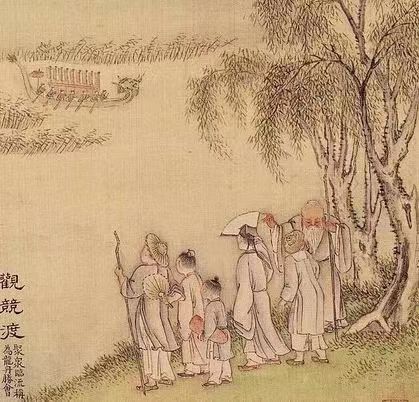 觀競渡
聚衆臨流稱
為龍舟勝會